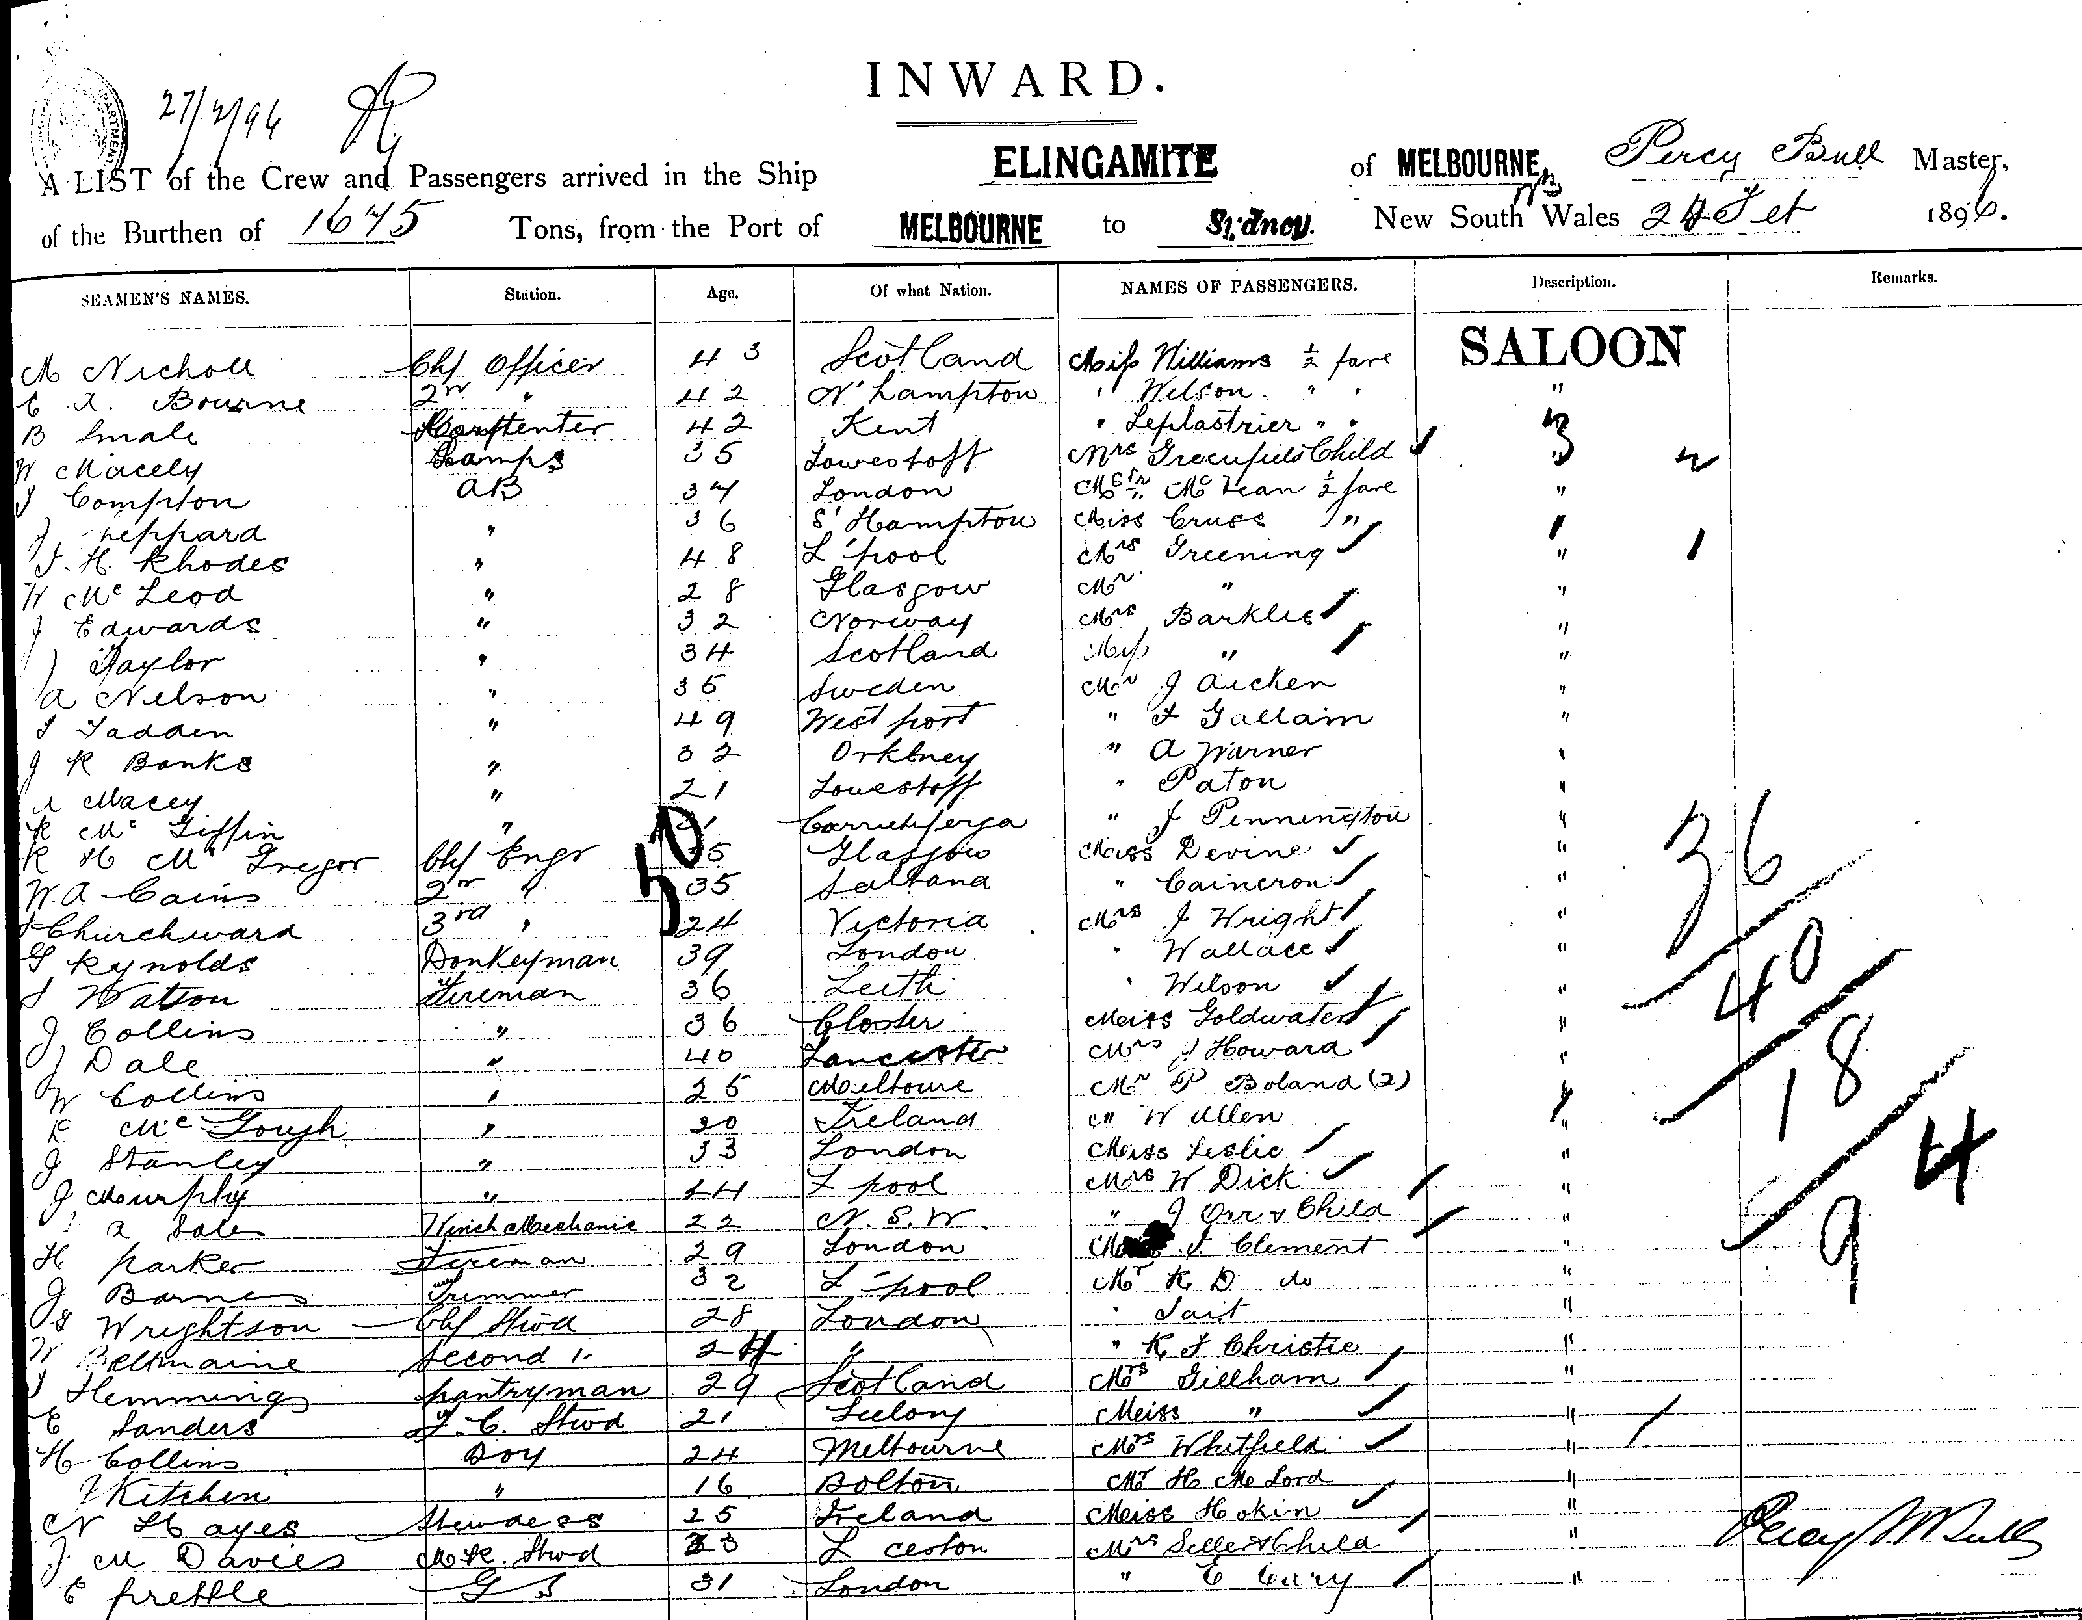 INWARD.
27/2/96
A LIST of the Crew and Passengers arrived in the Ship ELINGAMITE of MELBOURNE, Percy Bull Master,
of the Burthen of 1675 Tons, from the Port of MELBOURNE to Sydney. New South Wales 24 Feb 1896.
SEAMEN'S NAMES. Station. Age. Of what Nation. NAMES OF PASSENGERS. Description. Remarks.
A Nicholl Chf Officer 43 Scotland Miss Williams ½ fare SALOON
C A. Bourne 2nd " 42 N'hampton " Wilson. " " "
B Smale Carpenter 42 Kent " Leplastrier " "
W Macely Lamps 35 Lowestoff Mrs Greenfield & Child " 2
J Compton AB 37 London Mc Lean ½ fare "
J Sheppard " 36 S'Hampton Miss Cruss "
J. H. Rhodes " 48 L'pool Mrs Greening " 1
W McLeod " 28 Glasgow Mr " "
J Edwards " 32 Norway Mrs Barklie "
J Taylor " 34 Scotland Miss " "
A Nelson " 35 Sweden Mr J Aicken "
J Fadden " 49 Westport " F Gallain "
J R Banks " 32 Orkney " A Warner "
A Macey " 21 Lowestoff " Paton "
R Mc Giffin " Carrickferga " J Pennington "
R H Mc Gregor Chf Engr 50 Glasgow Miss Devine "
W A Cains 2nd " 35 " Caineron " 36
Churchward 3rd " 24 Victoria Mrs J Wright "
G Reynolds Donkeyman 39 London " Wallace "
J Watson Fireman 36 Leith " Wilson " 40
J Collins " 36 Gloster Miss Goldwater "
J Dale " 40 Lancaster Mrs J Howard " 18
W Collins " 25 Melbourne Mr P Boland (2) "
R Mc Gough " 20 Ireland " W Allen "
J Stanley " 33 London Miss Leslie " 4
J Murphy " L'pool Mrs W Dick "
A Sales Winch Mechanic 22 N. S. W. " J Orr & Child " 9
H Parker Fireman 29 London J Clement "
J Barnes Trimmer 32 L'pool Mr R D do "
Wrightson Chf Stwd 28 London " Tait "
W Beltmaine Second " 24 " " R J Christie "
J Hemmings Pantryman 29 Scotland Mrs Gillham "
E Sanders F. C. Stwd 21 Miss " "
H Collins Boy 24 Melbourne Mrs Whitfield "
J Kitchen " 16 Bolton Mr H McLord "
N Hayes Stewdess 25 Ireland Miss Hokin "
J M Davies Stwd 33 L'ceston Mrs Seller & Child " Percy W Bull
E Prettle G S 31 London " E Cary "